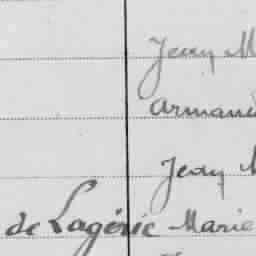 Jean M
Armand
Jean M
de Lagérie Marie